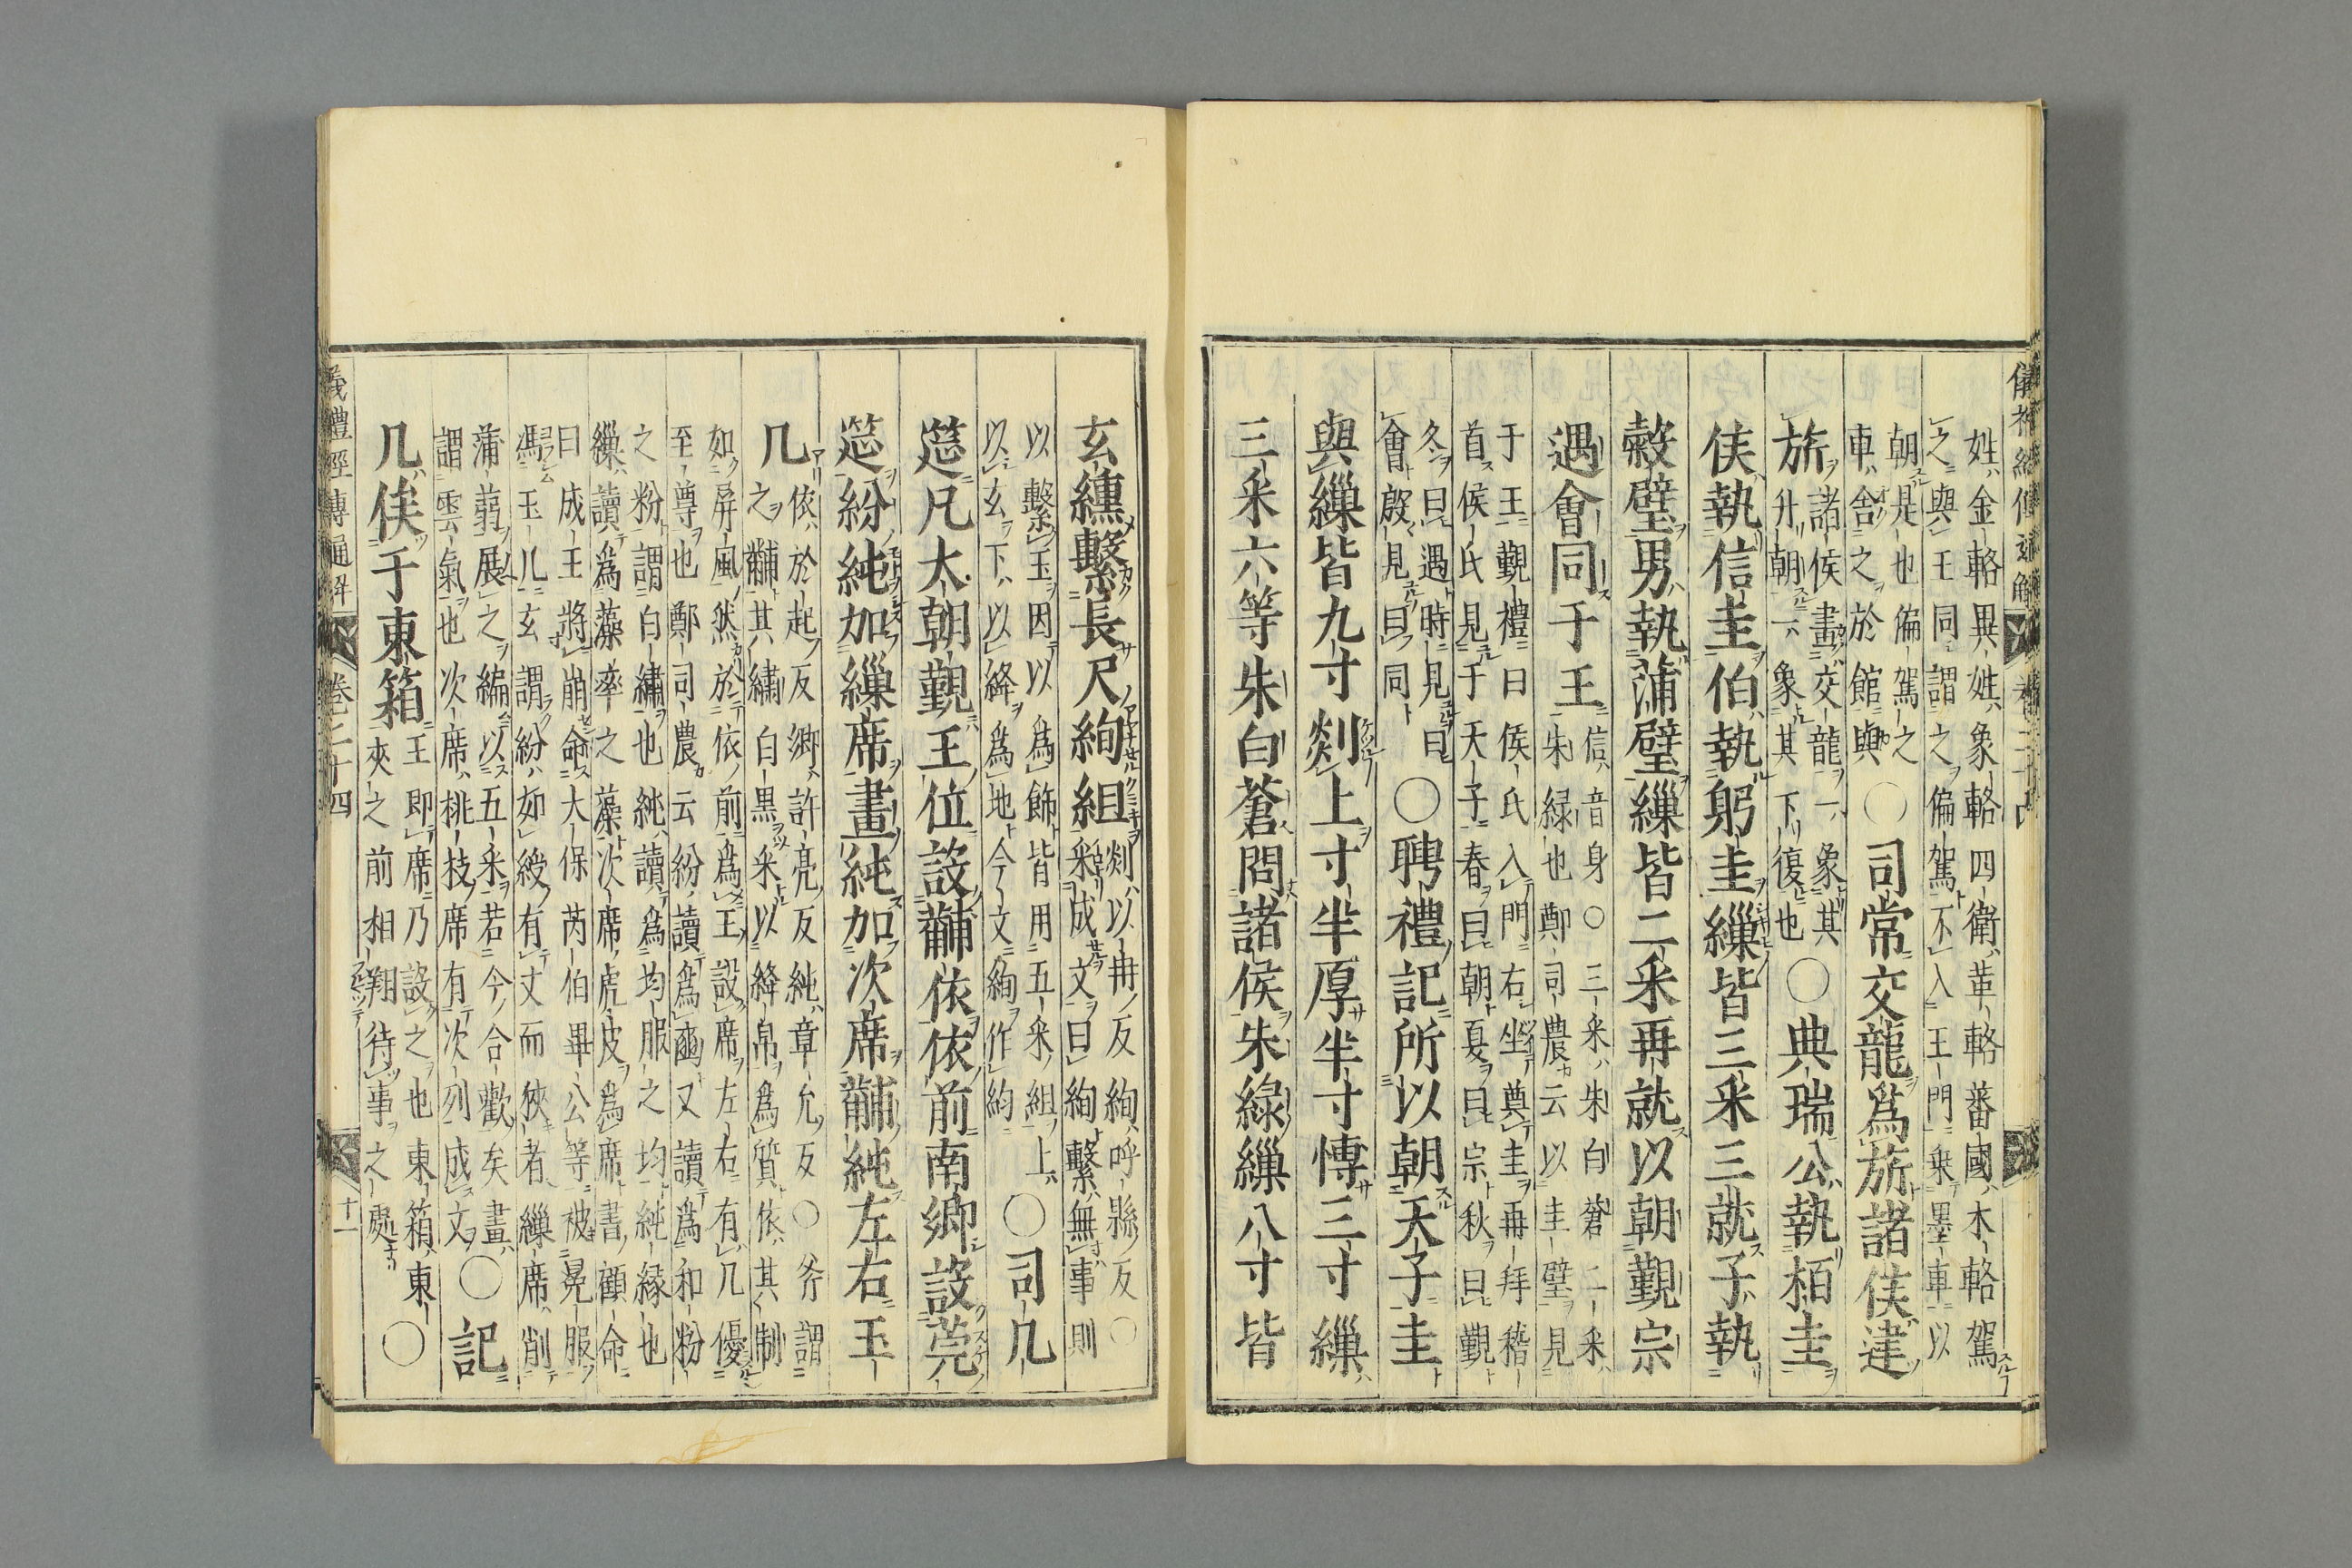 姓金輅異姓象輅四衛革輅蕃國木輅駕
之與王同謂之偏駕不入王門乗墨車以
朝是也偏駕之
車舍之於館與
○司常交龍爲旂諸侯建
旂
諸侯畫交龍一象其
升朝一象其下復也
○典瑞公執桓圭
侯執信圭伯執躬圭繅皆三采三就子執
穀璧男執蒲璧繅皆二采再就以朝覲宗
遇會同于王
信音身○三采朱白蒼二采
朱緑也鄭司農云以圭璧見
于王覲禮曰侯氏入門右坐奠圭再拜稽
首侯氏見于天子春曰朝夏曰宗秋曰覲
冬曰遇時見曰
會殷見曰同
○聘禮記所以朝天子圭
與繅皆九寸剡上寸半厚半寸博三寸繅
三采六等朱白蒼問諸侯朱綠繅八寸皆
玄纁繫長尺絢組
剡以冉反絢呼縣反○
采成文曰絢繫無事則
以繫玉因以爲飾皆用五采組上
以玄下以絳爲地今文絢作約
○司几
筵凡大朝覲王位設黼依依前南鄉設莞
筵紛純加繅席畫純加次席黼純左右玉
几
依於起反鄉許亮反純章允反○斧謂
之黼其繡白黑采以絳帛爲質依其制
如屏風然於依前爲王設席左右有几優
至尊也鄭司農云紛讀爲豳又讀爲和粉
之粉謂白繡也純讀爲均服之均純緣也
繅讀爲藻率之藻次席虎皮爲席書顧命
曰成王將崩命大保芮伯畢公等被冕服
馮玉几玄謂紛如綬有文而狹者繅席削
蒲蒻展之編以五采若今合歡矣畫
謂雲氣也次席桃枝席有次列成文
○記
几俟于東箱
王即席乃設之也東箱東
夾之前相翔待事之處
○
儀禮經傳通解
卷二十四
十一